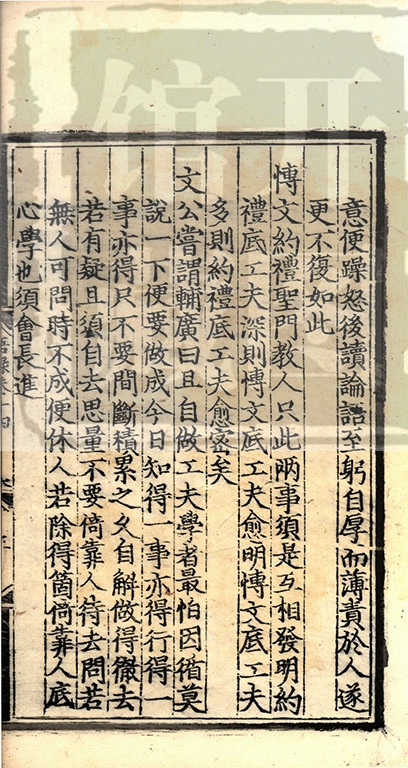 意便躁怒後讀論語至躬自厚而薄責於人遂
更不復如此
博文約禮聖門教人只此兩事須是互相發明約
禮底工夫深則博文底工夫愈明博文底工夫
多則約禮底工夫愈密矣
文公嘗謂輔廣曰且自做工夫學者最怕因循莫
說一下便要做成今日知得一事亦得行得一
事亦得只不要間斷積累之久自解做得徹去
若有疑且須自去思量不要倚靠人待去問若
無人可問時不成便休人若除得箇倚靠人底
心學也須會長進